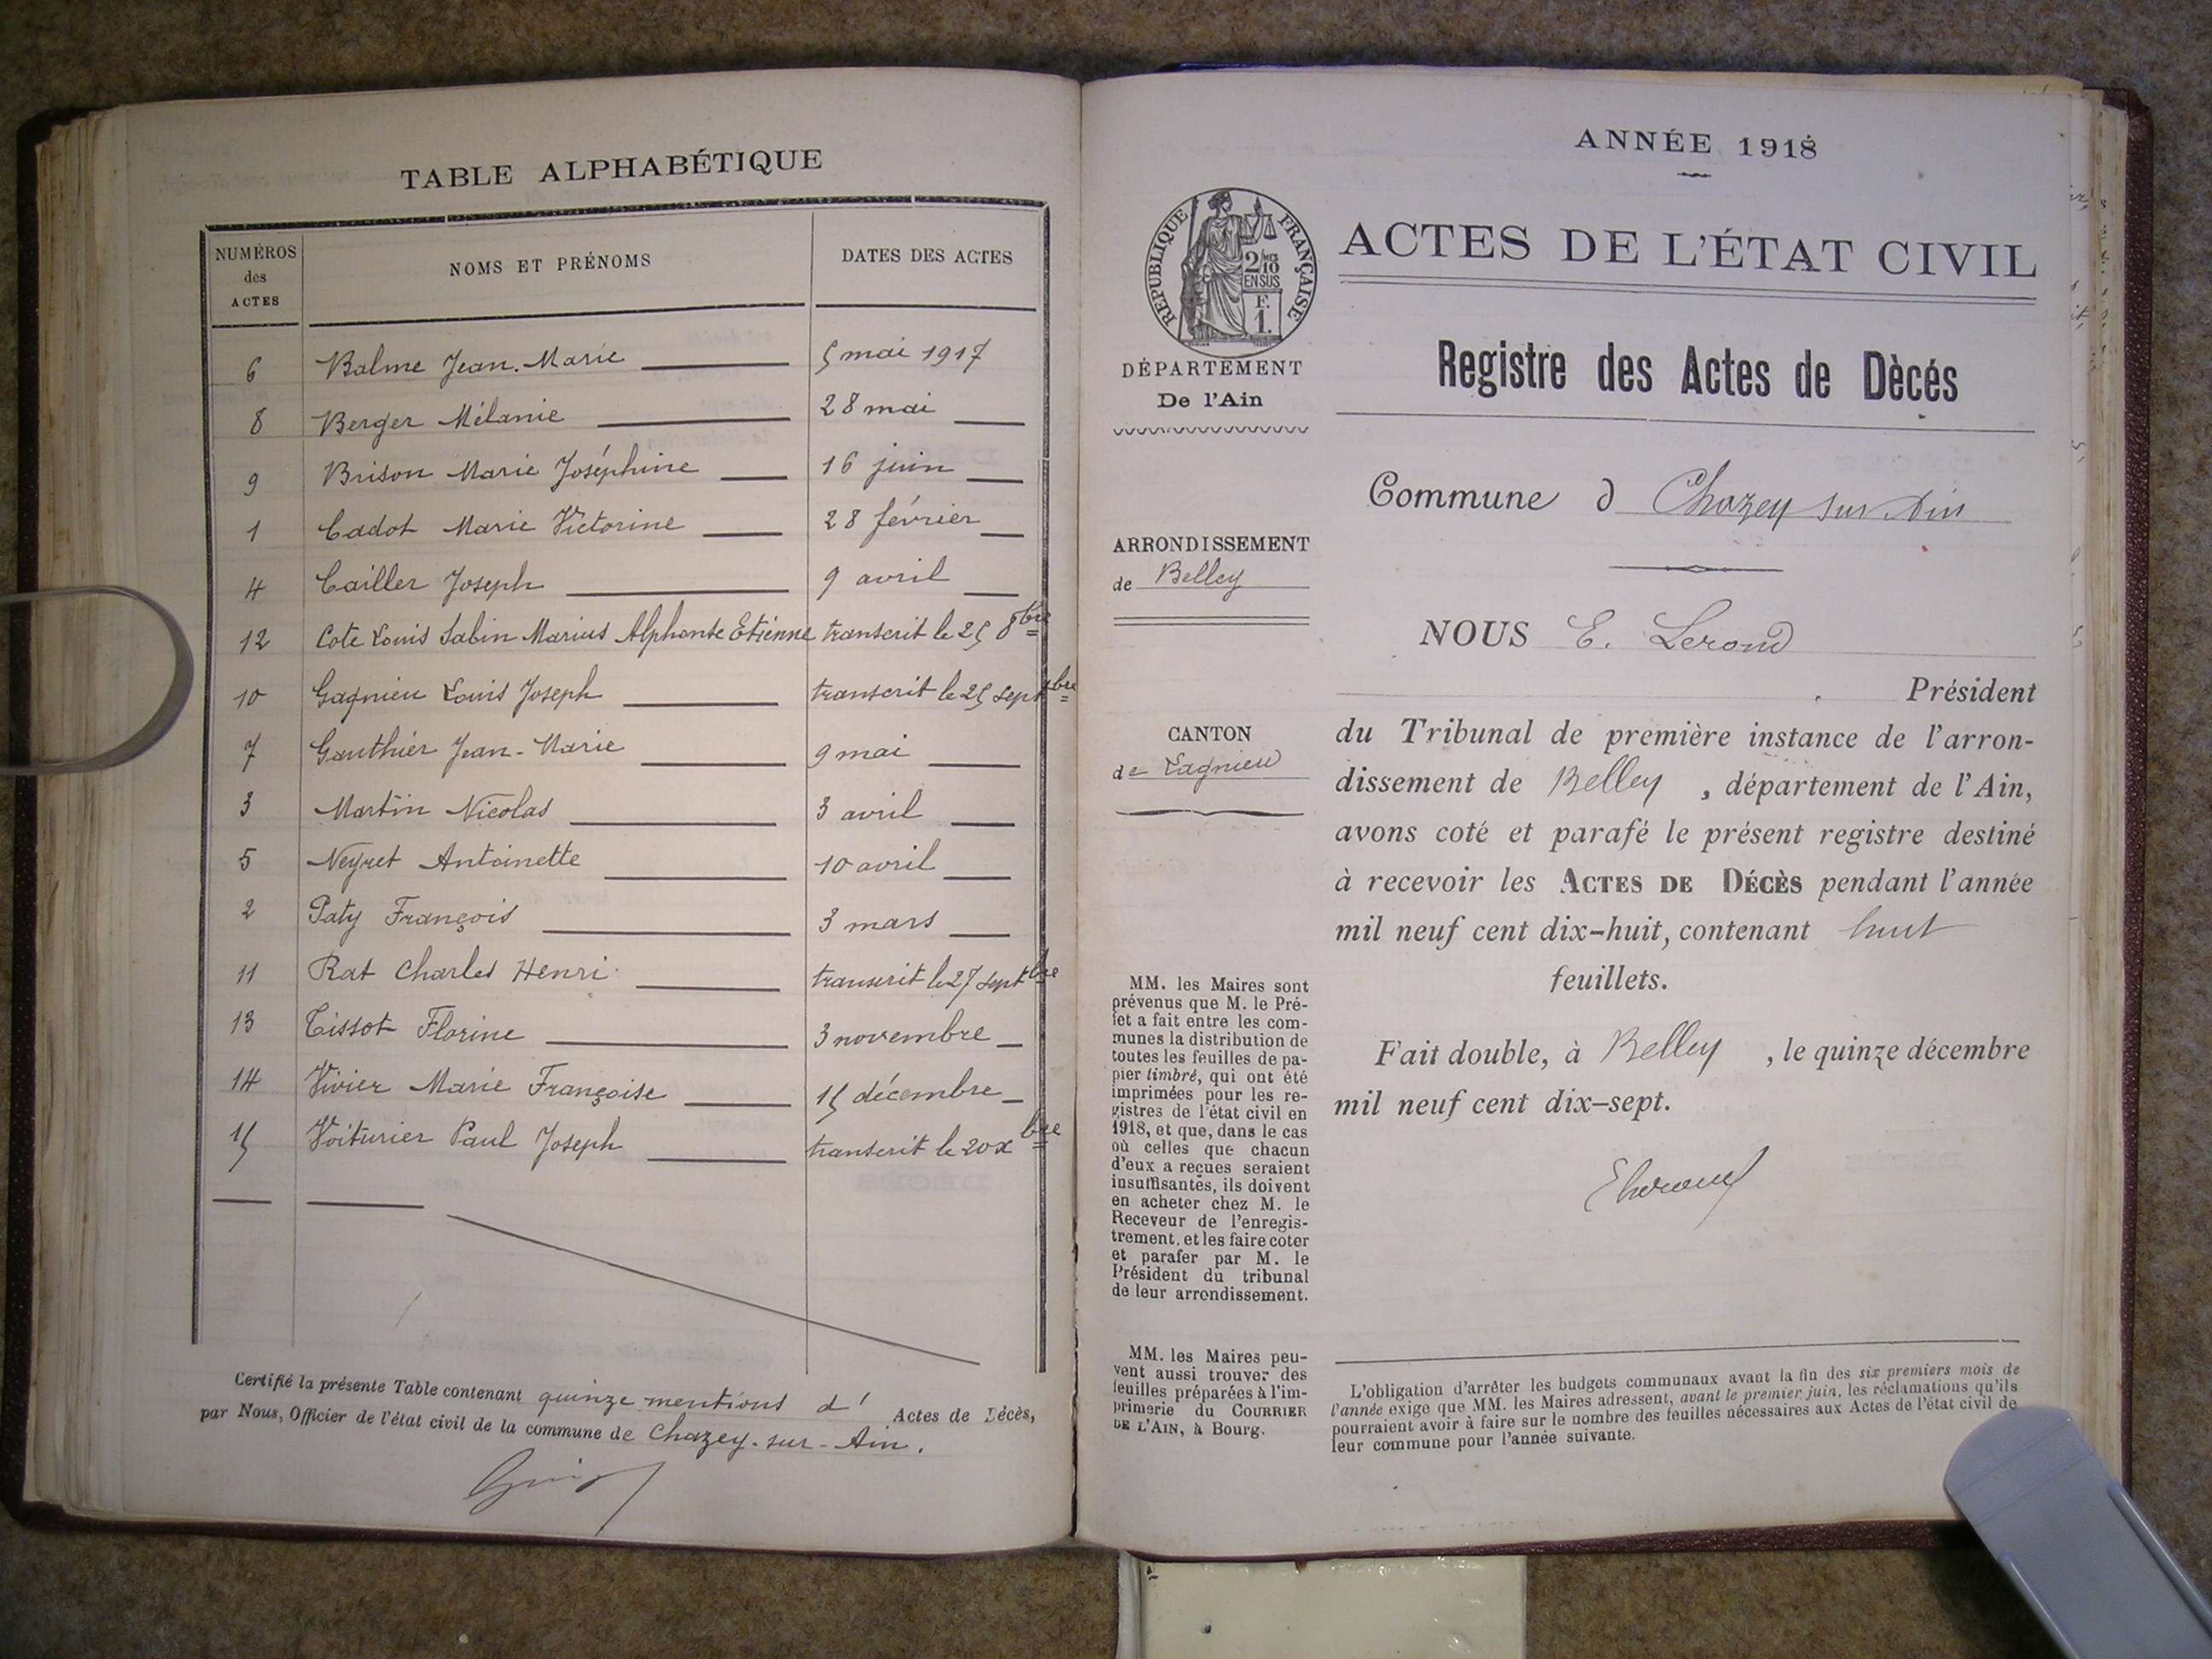 TABLE ALPHABÉTIQUE
NUMÉROS des ACTES
NOMS ET PRÉNOMS
DATES DES ACTES
6 Balme Jean-Marie 5 mai 1917
8 Berger Mélanie 28 mai
9 Brison Marie Joséphine 16 juin
1 Cadot Marie Victorine 28 février
4 Cailler Joseph 9 avril
12 Cote Louis Sabin Marius Alphonse Etienne transcrit le 25 8bre
10 Gagnieu Louis Joseph transcrit le 25 septbre
7 Gauthier Jean-Marie 9 mai
3 Martin Nicolas 3 avril
5 Neyret Antoinette 10 avril
2 Paty François 3 mars
11 Rat Charles Henri transcrit le 27 septbre
13 Tissot Florine 3 novembre
14 Vivier Marie Françoise 15 décembre
15 Voiturier Paul Joseph transcrit le 20 xbre
Certifié la présente Table contenant quinze mentions d' Actes de Décès,
par Nous, Officier de l'état civil de la commune de Chazey-sur-Ain.
ANNÉE 1918
RÉPUBLIQUE FRANÇAISE
2/10 EN SUS
F. 1.
DÉPARTEMENT
De l'Ain
ARRONDISSEMENT
de Belley
CANTON
de Lagnieu
MM. les Maires sont
prévenus que M. le Pré-
fet a fait entre les com-
munes la distribution de
toutes les feuilles de pa-
pier timbré, qui ont été
imprimées pour les re-
gistres de l'état civil en
1918, et que, dans le cas
où celles que chacun
d'eux a reçues seraient
insuffisantes, ils doivent
en acheter chez M. le
Receveur de l'enregis-
trement. et les faire coter
et parafer par M. le
Président du tribunal
de leur arrondissement.
MM. les Maires peu-
vent aussi trouver des
feuilles préparées à l'im-
primerie du COURRIER
DE L'AIN, à Bourg.
ACTES DE L'ÉTAT CIVIL
Registre des Actes de Dècés
Commune d Chazey sur Ain
NOUS E. Lerond
Président
du Tribunal de première instance de l'arron-
dissement de Belley, département de l'Ain,
avons coté et parafé le présent registre destiné
à recevoir les ACTES DE DÉCÈS pendant l'année
mil neuf cent dix-huit, contenant huit
feuillets.
Fait double, à Belley, le quinze décembre
mil neuf cent dix-sept.
L'obligation d'arrêter les budgets communaux avant la fin des six premiers mois de
l'année exige que MM. les Maires adressent, avant le premier juin, les réclamations qu'ils
pourraient avoir à faire sur le nombre des feuilles nécessaires aux Actes de l'état civil de
leur commune pour l'année suivante.